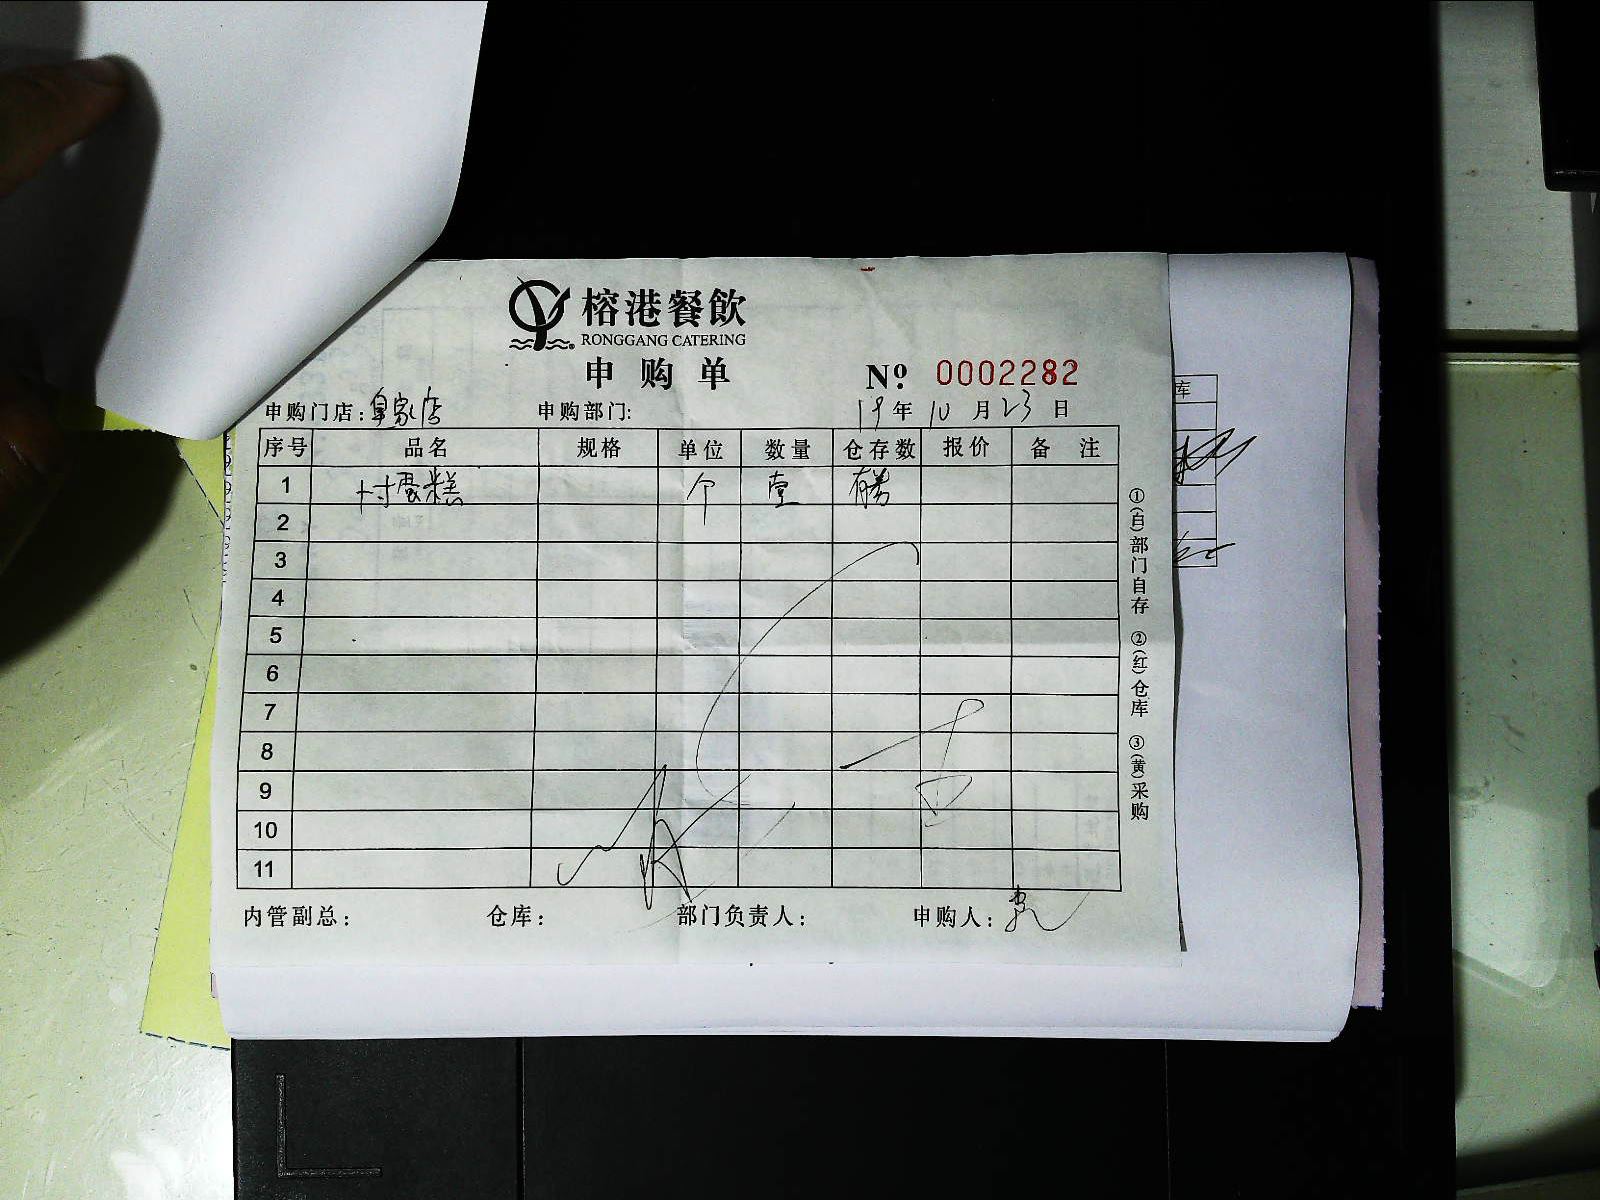 榕港餐飲
RONGGANG CATERING
申购单 Nº 0002282
申购门店:皇家店 申购部门: 19年10月23日
序号 品名 规格 单位 数量 仓存数 报价 备注
1 寸蛋糕 个 壹
2
3
4
5
6
7
8
9
10
11
内管副总: 仓库: 部门负责人: 申购人:
①(白)部门自存 ②(红)仓库 ③(黄)采购
库